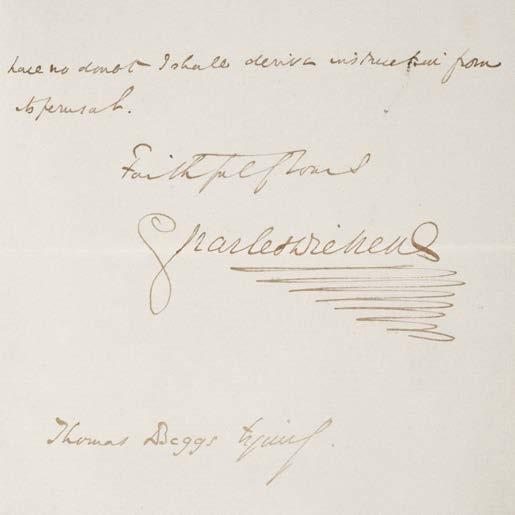 have no doubt I shall derive instruction from
its perusal.
Faithfully Yours
Charles Dickens
Thomas Beggs Esquire.